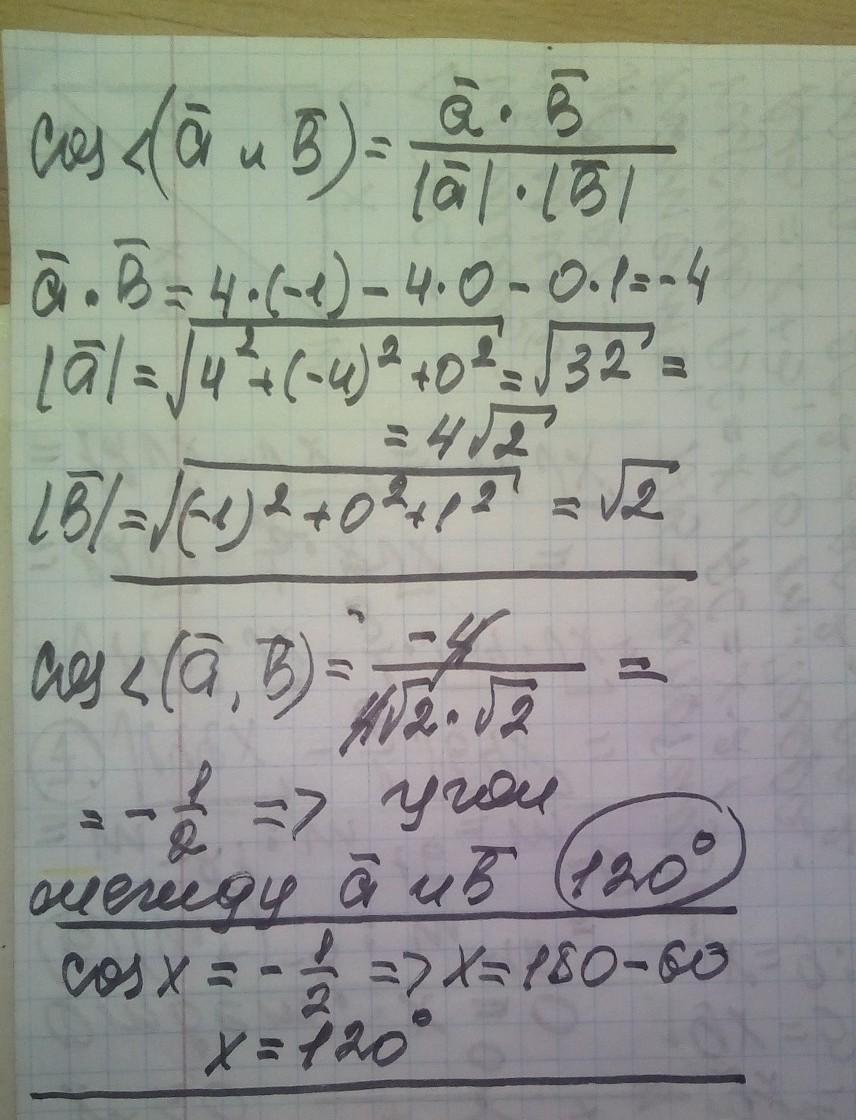 cos<(ā и b̄)= ā·b̄ / |ā|·|b̄|
ā·b̄=4·(-1)-4·0-0·1=-4
|ā|=√(4²+(-4)²+0²)=√32=
=4√2
|b̄|=√((-1)²+0²+1²) =√2
cos<(ā,b̄)= -4 / 4√2·√2 =
=-1/2 => угол
между ā и b̄ 120°
cosx=-1/2 => x=180-60
x=120°